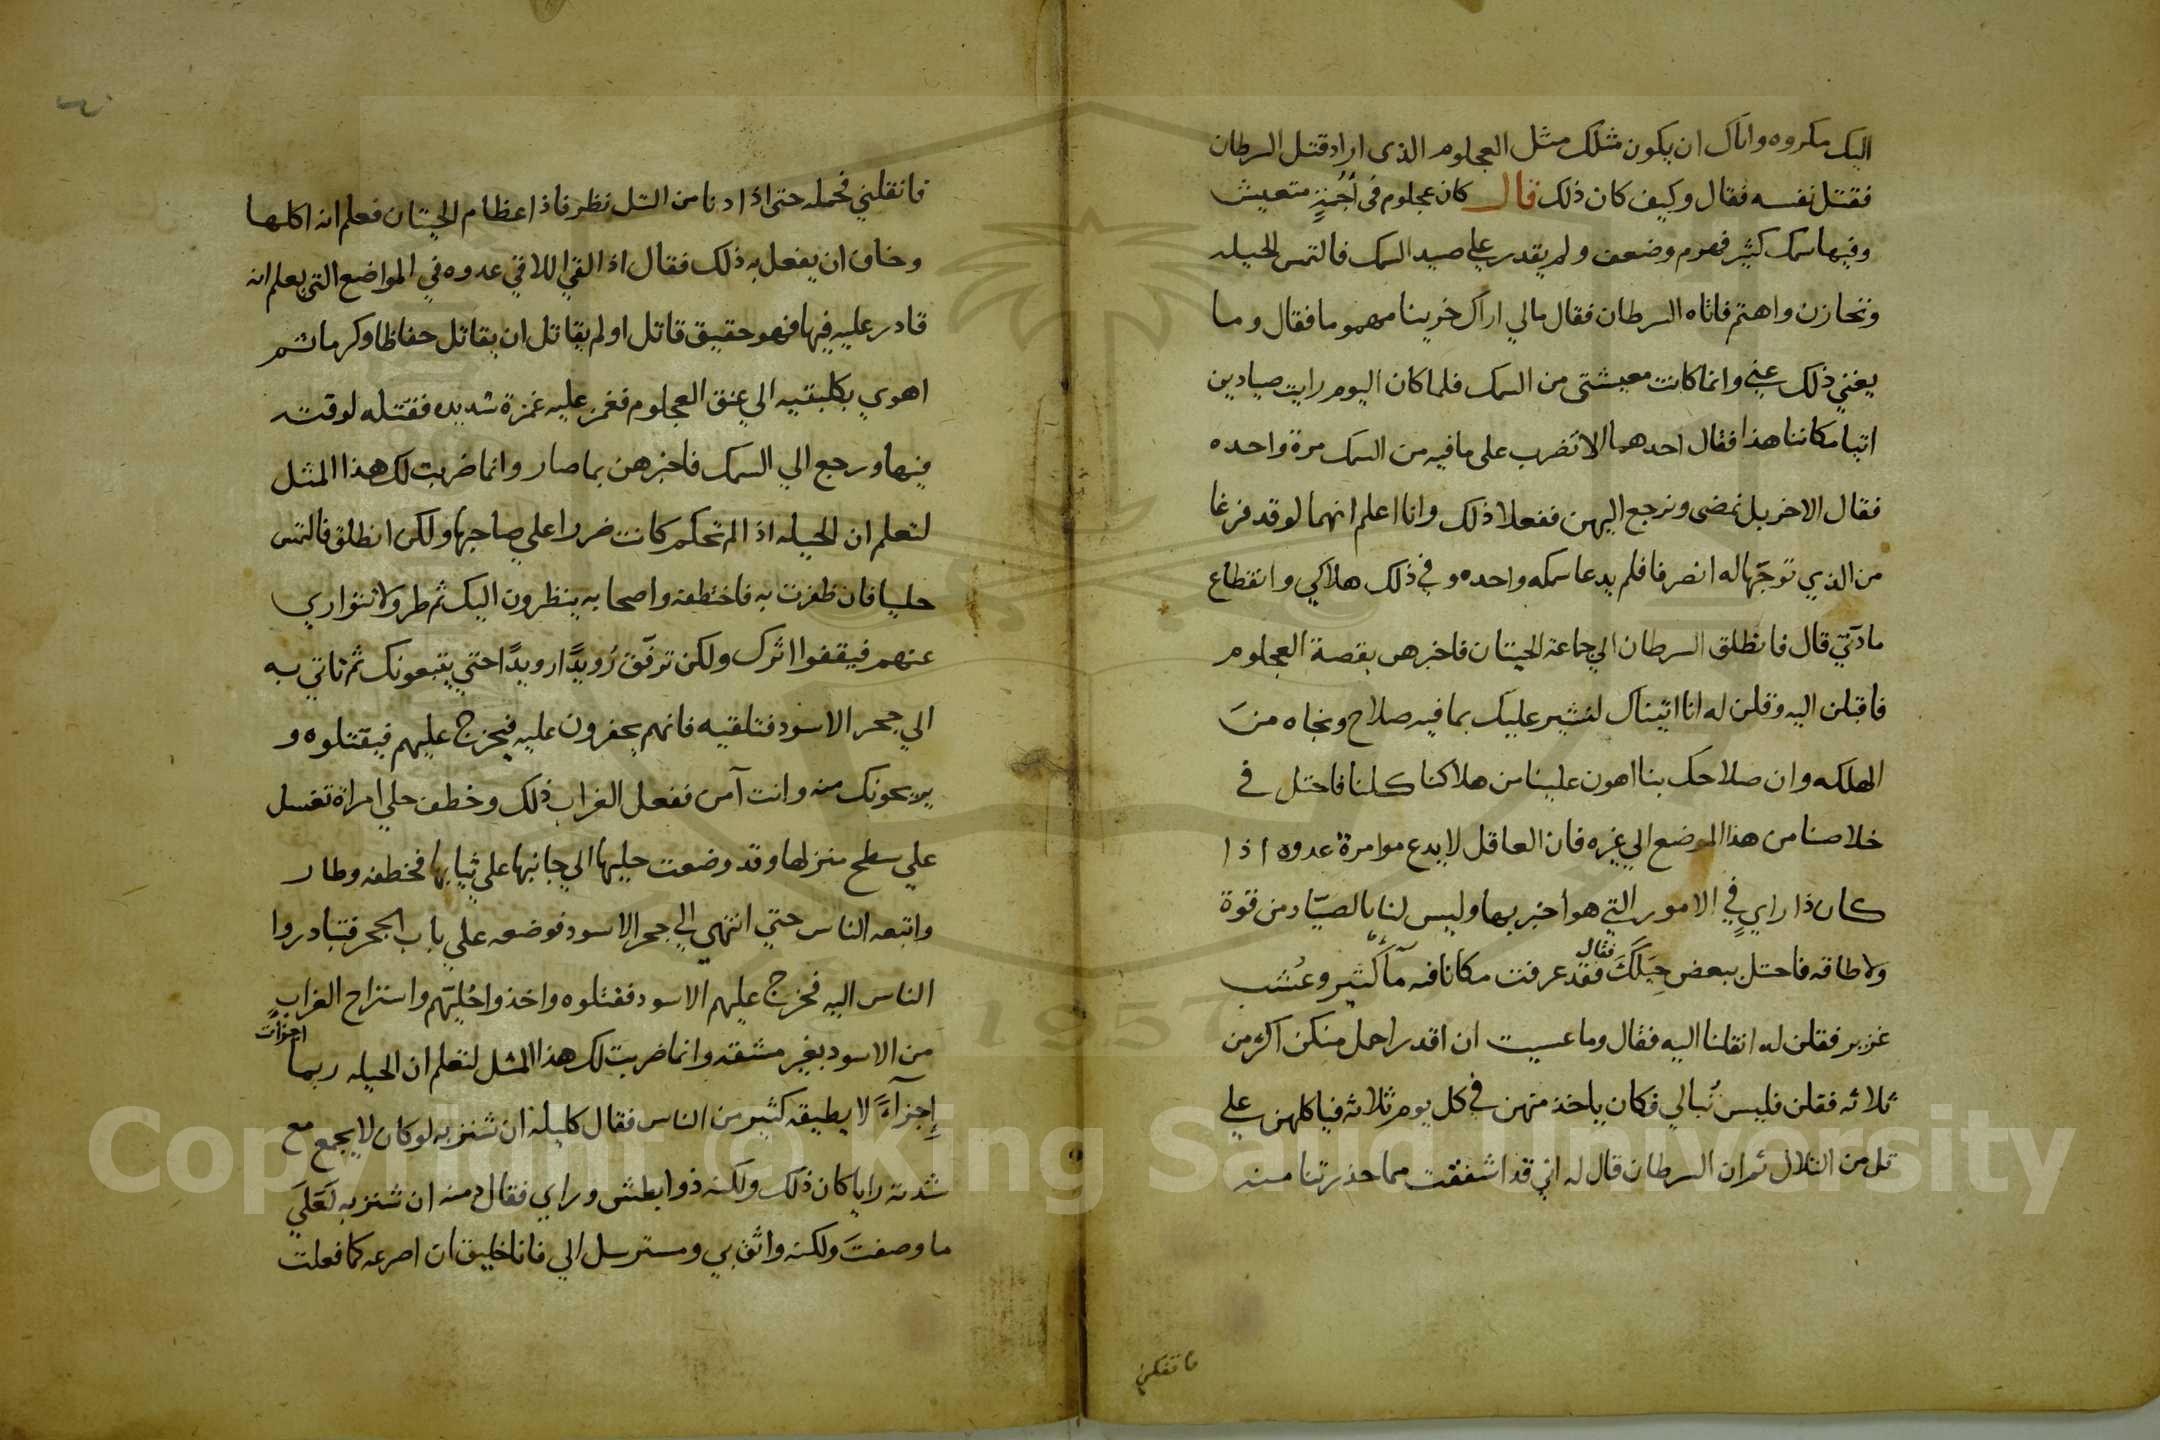 اليك مكروه واياك ان يكون مثلك مثل العجلوم الذى اراد قتل السرطان
فقتل نفسه فقال وكيف كان ذلك قال كان عجلوم فى اجنةٍ متعيش
وفيها سمك كثير فهرم وضعف ولم يقدر علي صيد السمك فالتمس الحيله
وتحازن واهتم فاتاه السرطان فقال مالي اراك حزينا مهموما فقال وما
يغني ذلك عني وانما كانت معيشتى من السمك فلما كان اليوم رايت صيادين
اتيا مكاننا هذا فقال احدهما الا نضرب على ما فيه من السمك مرة واحده
فقال الاخر بل نمضى ونرجع اليهن ففعلا ذلك وانا اعلم انهما لو قد فرغا
من الذي توجّها له انصرفا فلم يدعا سمكه واحده وفي ذلك هلاكي وانقطاع
مادتي قال فانطلق السرطان الي جماعة الحيتان فاخبرهن بقصة العجلوم
فاقبلن اليه وقلن له انا اتيناك لتشير عليك بما فيه صلاح ونجاه من
الهلكه وان صلاحك بنا اهون علينا من هلاكنا كلنا فاحتل في
خلاصنا من هذا الموضع الي غيره فان العاقل لا يدع موامرة عدوه اذا
كان ذا رايٍ في الامور التي هو اخبر بها وليس لنا بالصيّاد من قوة
ولا طاقه فاحتل ببعض حِيَلَكَ فقال فقد عرفت مكانا فيه مآ كثير وعُشب
غزير فقلن له انقلنا اليه فقال وما عسيت ان اقدر احمل منكن اكثر من
ثلاثه فقلن فليس نُبالي فكان ياخذ منهن في كل يوم ثلاثه فياكلهن علي
تل من التلال ثم ان السرطان قال له اني قد اشفقت مما حذرتنا منه
فانقلني
فانقلني فحمله حتى اذا دنا من التل نظر فاذا عظام الحيتان فعلم انه اكلها
وخاف ان يفعل به ذلك فقال اذا لقي اللاقي عدوه في المواضع التي يعلم انه
قادر عليه فيها فهو حقيق قاتل او لم يقاتل ان يقاتل حفاظا وكرما ثم
اهوي بكلبتيه الي عنق العجلوم فغمز عليه غمزة شديده فقتله لوقته
فيها ورجع الي السمك فاخبرهن بما صار وانما ضربت لك هذا المثل
لتعلم ان الحيله اذا لم تحكم كانت ضررا علي صاحبها ولكن انطلق فالتمس
حليا فان ظفرت به فاختطفه واصحابه ينظرون اليك ثم طر ولا تتواري
عنهم فيقفوا اثرك ولكن ترفّق رُويدًا رويدًا حتي يتبعونك ثم تاتي به
الي جحر الاسود فتلقيه فانهم يحفرون عليه فيخرج عليهم فيقتلوه و
يريحونك منه وانت آمن ففعل الغراب ذلك وخطف حلي امراة تغسل
علي سطح منزلها وقد وضعت حليها الي جانبها علي ثيابها فخطفه وطار
واتبعه الناس حتي انتهي الي جحر الاسود فوضعه علي باب الجحر فتبادروا
الناس اليه فخرج عليهم الاسود فقتلوه واخذوا حُليّهم واستراح الغراب
من الاسود بغير مشقه وانما ضربت لك هذا المثل لتعلم ان الحيله ربما اجزأت
إِجزآءً لا يطيقه كثير من الناس فقال كليله ان شنزبه لو كان لا يجمع مع
شدته رايا كان ذلك ولكنه ذوا بطش وراي فقال دمنه ان شنزبه لَعَلَي
ما وصفتَ ولكنه واثق بي ومسترسل الي فانا خليق ان اصرعه كما فعلت
Copyright © King Saud University
1957